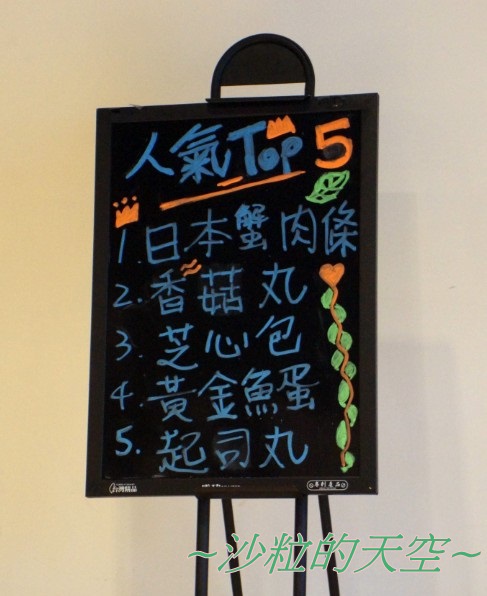 人氣Top 5
1.日本蟹肉條
2.香菇丸
3.芝心包
4.黃金魚蛋
5.起司丸
台灣精品
專利產品
~沙粒的天空~